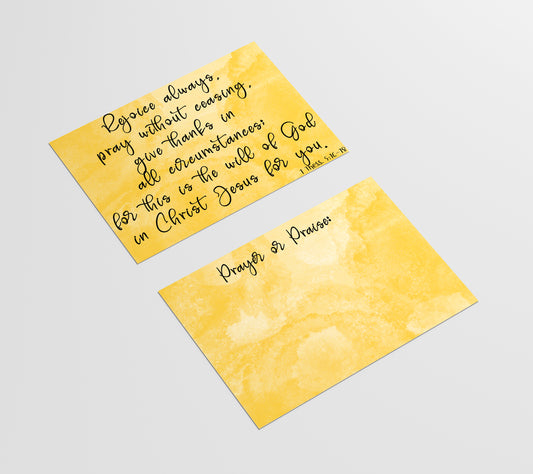 Rejoice always,
pray without ceasing,
give thanks in
all circumstances;
for this is the will of God
in Christ Jesus for you.
1 Thess. 5:16-18
Prayer or Praise: